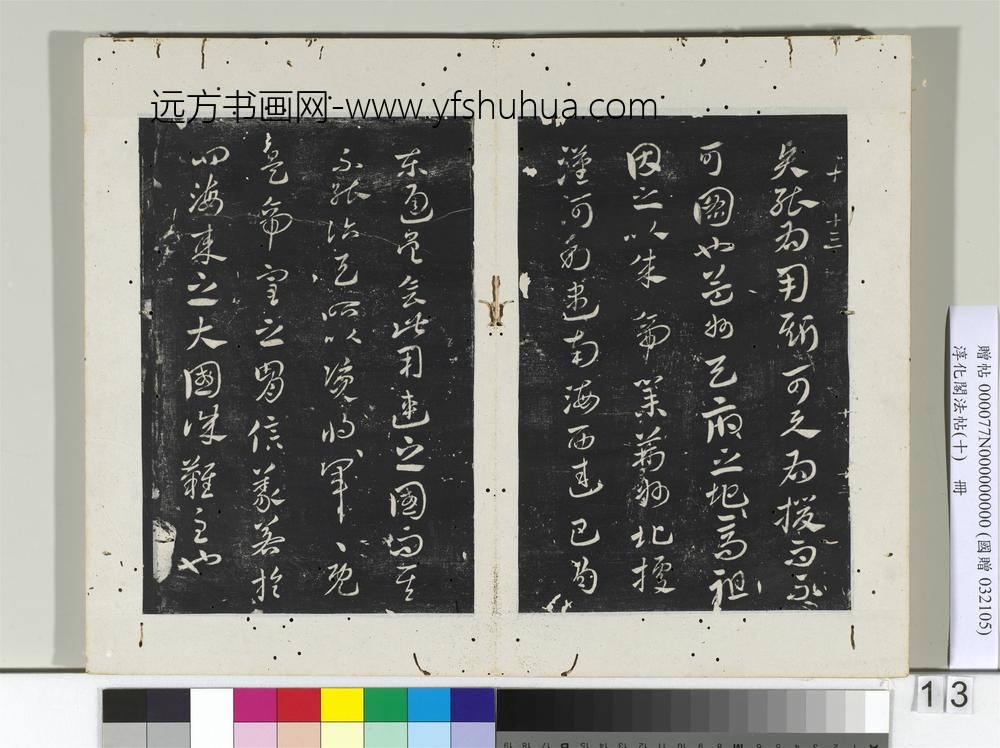 远方书画网-www.yfshuhua.com
十
十三
能為用斯可為援而不
可圖也益州天府之地高祖
因之以成帝業荊州北據
漢沔利盡南海西連巴蜀
東通吳會此用武之國而其
不能治天所以資將軍既
是帝室之胄信義著於
四海之大國難之也
贈帖 000077N000000000 (國贈 032105)
淳化閣法帖(十) 冊
13